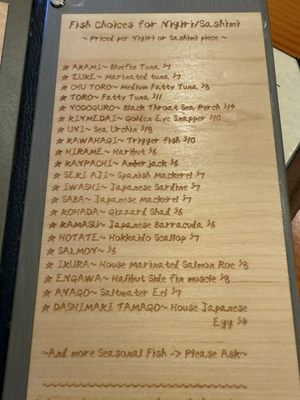 Fish Choices for Nigiri/Sashimi
~ Priced per Nigiri or Sashimi piece ~
☆ AKAMI~ Bluefin Tuna $7
☆ ZUKE~ Marinated tuna $7
☆ CHU TORO~ Medium Fatty Tuna $8
☆ TORO~ Fatty Tuna $11
☆ NODOGURO~ Black Throat Sea Perch $14
☆ KINMEDAI~ Golden Eye Snapper $10
☆ UNI~ Sea Urchin $18
☆ KAWAHAGI~ Trigger fish $10
☆ HIRAME~ Halibut $6
☆ KANPACHI~ Amberjack $6
☆ SEKI AJI~ Spanish Mackerel $7
☆ IWASHI~ Japanese Sardine $7
☆ SABA~ Japanese Mackerel $7
☆ KOHADA~ Gizzard Shad $6
☆ KAMASU~ Japanese Barracuda $6
☆ HOTATE~ Hokkaido Scallop $7
☆ SALMON~ $6
☆ IKURA~ House Marinated Salmon Roe $8
☆ ENGAWA~ Halibut Side fin muscle $8
☆ ANAGO~ Saltwater Eel $7
☆ DASHIMAKI TAMAGO~ House Japanese
Egg $4
~And more Seasonal Fish -> Please Ask~